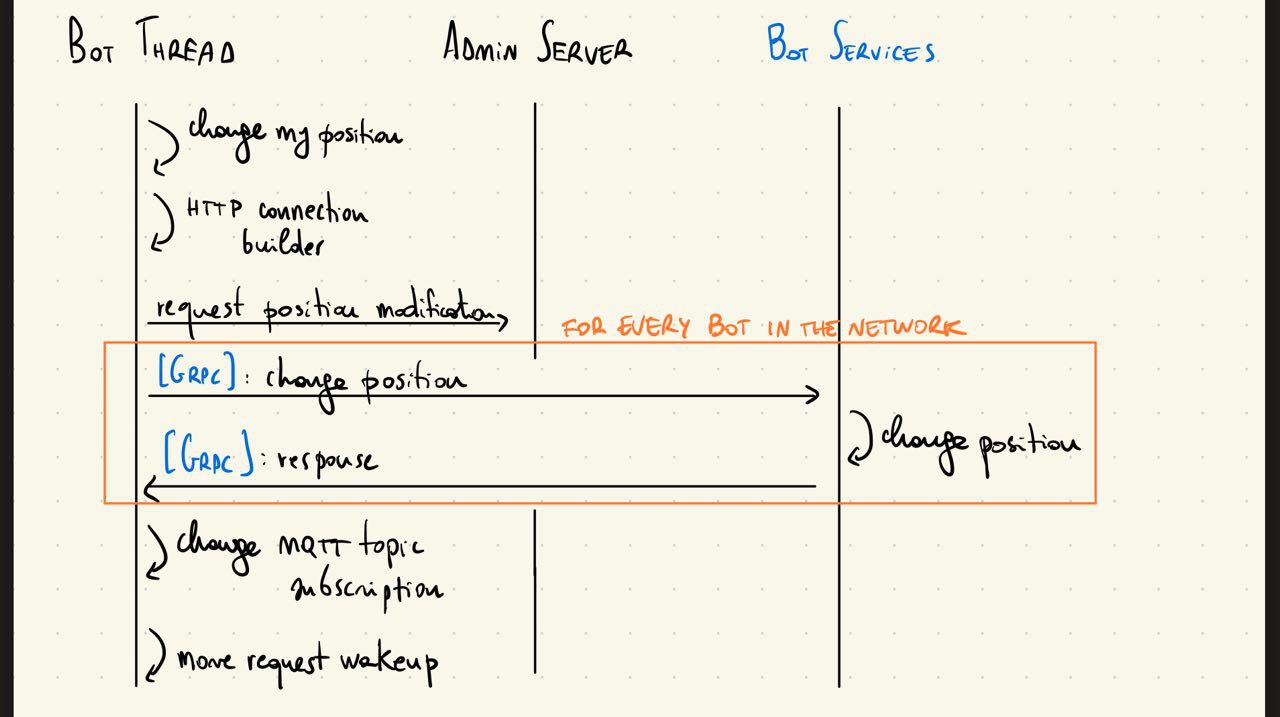 BOT THREAD
ADMIN SERVER
BOT SERVICES
change my position
HTTP connection
builder
request position modification
FOR EVERY BOT IN THE NETWORK
[GRPC] : change position
change position
[GRPC] : response
change MQTT topic
subscription
move request wakeup